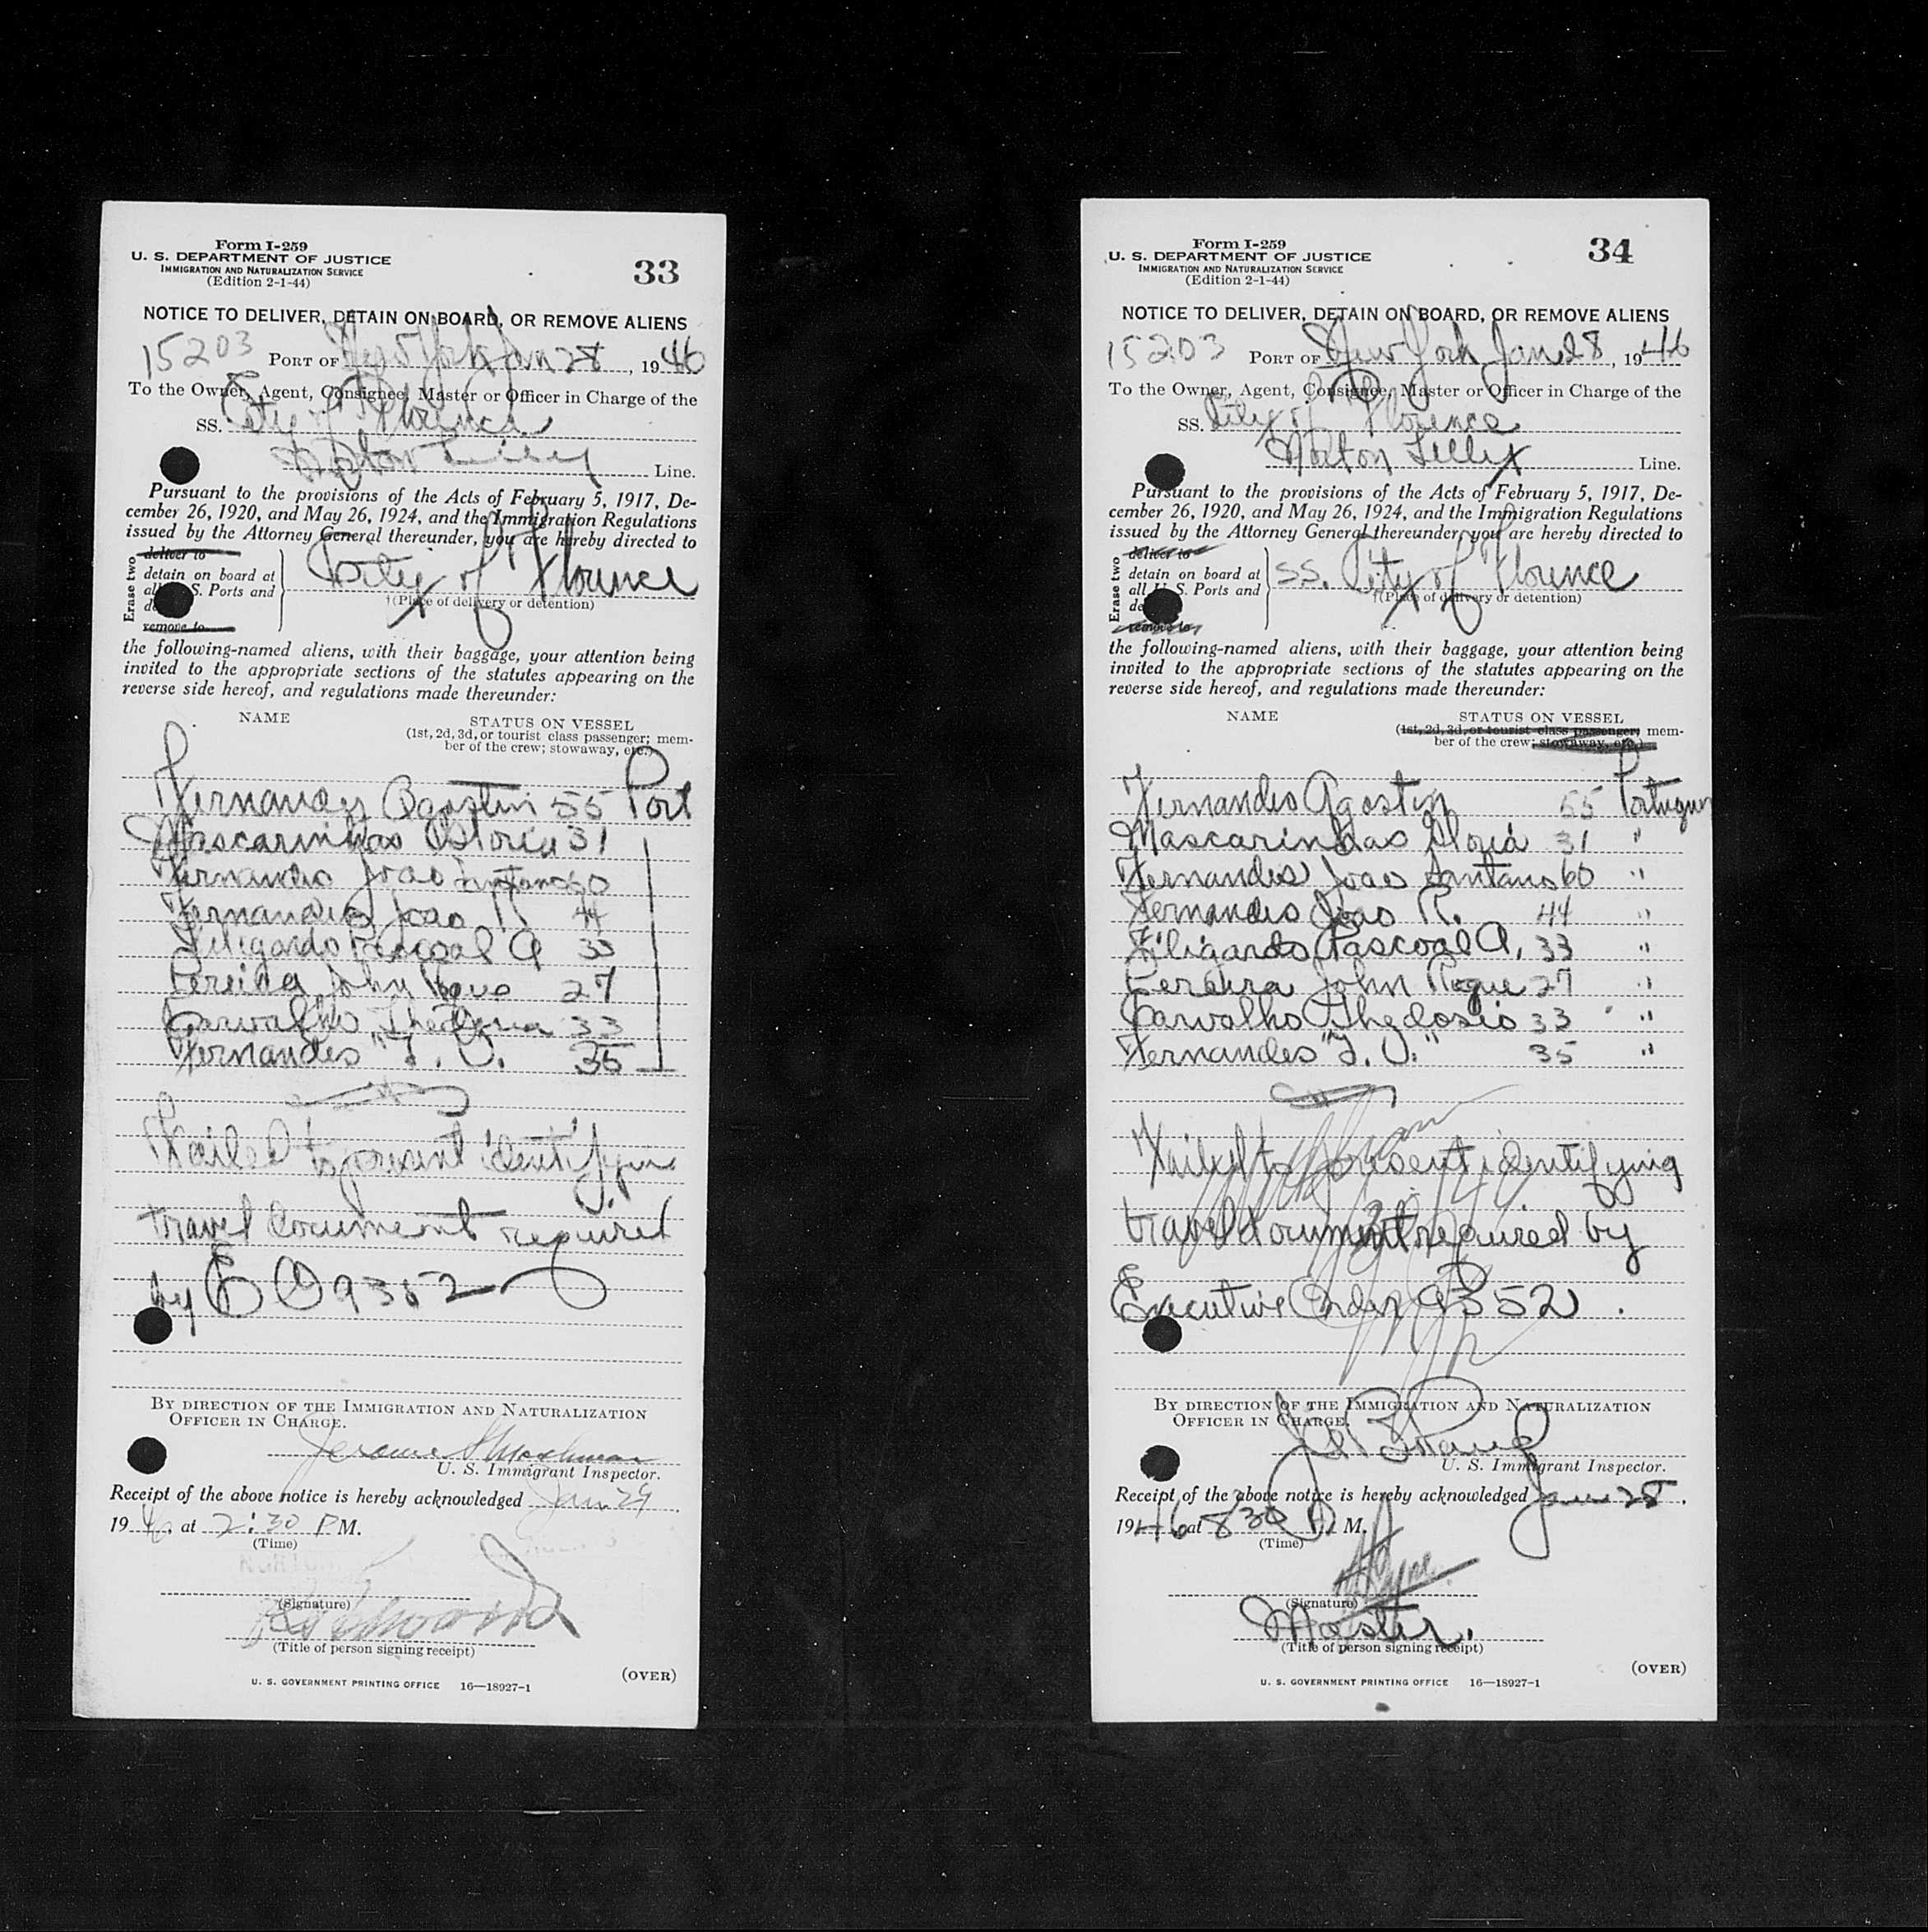 Form I-259
U. S. DEPARTMENT OF JUSTICE
IMMIGRATION AND NATURALIZATION SERVICE
(Edition 2-1-44)
33
NOTICE TO DELIVER, DETAIN ON BOARD, OR REMOVE ALIENS
15203 PORT OF New York Jan 28, 1946
To the Owner, Agent, Consignee, Master or Officer in Charge of the
SS. City of Florence
Norton Lilly Line.
Pursuant to the provisions of the Acts of February 5, 1917, De-
cember 26, 1920, and May 26, 1924, and the Immigration Regulations
issued by the Attorney General thereunder, you are hereby directed to
Erase two
deliver to
detain on board at
all U. S. Ports and
remove to
City of Florence
(Place of delivery or detention)
the following-named aliens, with their baggage, your attention being
invited to the appropriate sections of the statutes appearing on the
reverse side hereof, and regulations made thereunder:
NAME STATUS ON VESSEL
(1st, 2d, 3d, or tourist class passenger; mem-
ber of the crew; stowaway, etc.)
Fernandes Agostin 55 Port
Mascarinhas 31
Fernandes Joao 60
Fernandes Joao R 44
Pascoal A 33
Pereira John 27
Carvalho 33
Fernandes "J. U. 35
Failed to present identifying
travel document required
by E O 9352
BY DIRECTION OF THE IMMIGRATION AND NATURALIZATION
OFFICER IN CHARGE.
Jerome
U. S. Immigrant Inspector.
Receipt of the above notice is hereby acknowledged Jan 29,
1946, at 2:30 P M.
(Time)
(Signature)
(Title of person signing receipt)
(OVER)
U. S. GOVERNMENT PRINTING OFFICE 16—18927-1
Form I-259
U. S. DEPARTMENT OF JUSTICE
IMMIGRATION AND NATURALIZATION SERVICE
(Edition 2-1-44)
34
NOTICE TO DELIVER, DETAIN ON BOARD, OR REMOVE ALIENS
15203 PORT OF New York Jan 28, 1946
To the Owner, Agent, Consignee, Master or Officer in Charge of the
SS. City of Florence
Norton Lilly Line.
Pursuant to the provisions of the Acts of February 5, 1917, De-
cember 26, 1920, and May 26, 1924, and the Immigration Regulations
issued by the Attorney General thereunder, you are hereby directed to
Erase two
deliver to
detain on board at
all U. S. Ports and
remove to
SS. City of Florence
(Place of delivery or detention)
the following-named aliens, with their baggage, your attention being
invited to the appropriate sections of the statutes appearing on the
reverse side hereof, and regulations made thereunder:
NAME STATUS ON VESSEL
(1st, 2d, 3d, or tourist class passenger; mem-
ber of the crew; stowaway, etc.)
Fernandes Agostin 55
Mascarinhas Gloria 31 "
Fernandes Joao Santano 60 "
Fernandes Joao R. 44 "
Filigardo Pascoal A. 33 "
Pereira John Roque 27 "
Carvalho Thedosio 33 "
Fernandes "J. U." 35 "
Failed to present identifying
travel document required by
Executive Order 9352.
BY DIRECTION OF THE IMMIGRATION AND NATURALIZATION
OFFICER IN CHARGE.
U. S. Immigrant Inspector.
Receipt of the above notice is hereby acknowledged Jan 28,
1946 at 8 30 A M.
(Time)
(Signature)
Master.
(Title of person signing receipt)
(OVER)
U. S. GOVERNMENT PRINTING OFFICE 16—18927-1